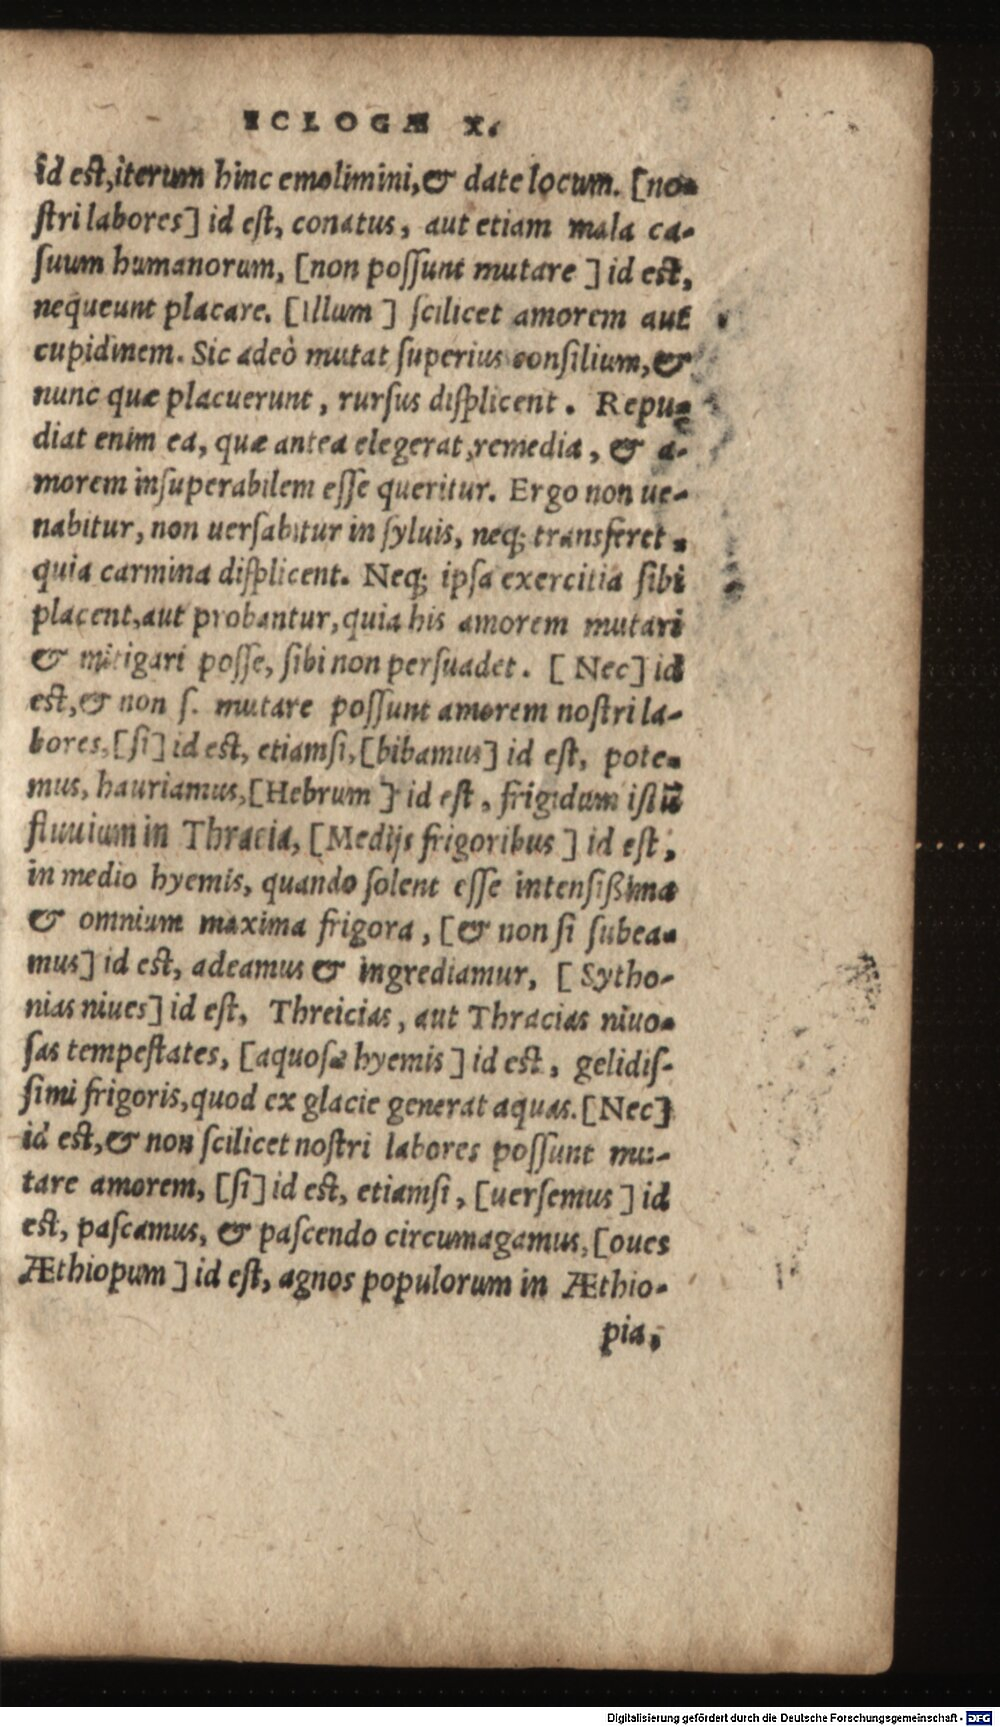 ECLOGÆ X.
id est, iterum hinc emolimini, & date locum. [no-
ſtri labores] id eſt, conatus, aut etiam mala ca-
ſuum humanorum, [non poſſunt mutare] id eſt,
nequeunt placare. [Illum] ſcilicet amorem aut
cupidinem. Sic adeò mutat ſuperius conſilium, &
nunc quæ placuerunt, rurſus diſplicent. Repu-
diat enim ea, quæ antea elegerat, remedia, & a-
morem inſuperabilem eſſe queritur. Ergo non ue-
nabitur, non uerſabitur in ſyluis, neq; transferet.
quia carmina diſplicent. Neq; ipſa exercitia ſibi
placent, aut probantur, quia his amorem mutari
& mitigari poſſe, ſibi non perſuadet. [Nec] id
eſt, & non ſ. mutare poſſunt amorem noſtri la-
bores, [ſi] id eſt, etiamſi, [bibamus] id eſt, pote-
mus, hauriamus, [Hebrum] id eſt, frigidum iſtū
fluuium in Thracia, [Medijs frigoribus] id eſt,
in medio hyemis, quando ſolent eſſe intenſißima
& omnium maxima frigora, [& non ſi ſubea-
mus] id eſt, adeamus & ingrediamur, [Sytho-
nias niues] id eſt, Threicias, aut Thracias niuo-
ſas tempeſtates, [aquoſæ hyemis] id eſt, gelidiſ-
ſimi frigoris, quod ex glacie generat aquas. [Nec]
id eſt, & non ſcilicet noſtri labores poſſunt mu-
tare amorem, [ſi] id eſt, etiamſi, [uerſemus] id
eſt, paſcamus, & paſcendo circumagamus, [oues
Æthiopum] id eſt, agnos populorum in Æthio-
pia,
Digitalisierung gefördert durch die Deutsche Forschungsgemeinschaft - DFG